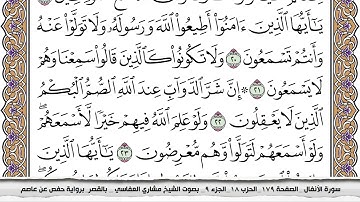 يَـٰٓأَيُّهَا ٱلَّذِينَ ءَامَنُوٓا۟ أَطِيعُوا۟ ٱللَّهَ وَرَسُولَهُۥ وَلَا تَوَلَّوْا۟ عَنْهُ
وَأَنتُمْ تَسْمَعُونَ ٢٠ وَلَا تَكُونُوا۟ كَٱلَّذِينَ قَالُوا۟ سَمِعْنَا وَهُمْ
لَا يَسْمَعُونَ ٢١ ۞ إِنَّ شَرَّ ٱلدَّوَآبِّ عِندَ ٱللَّهِ ٱلصُّمُّ ٱلْبُكْمُ
ٱلَّذِينَ لَا يَعْقِلُونَ ٢٢ وَلَوْ عَلِمَ ٱللَّهُ فِيهِمْ خَيْرًا لَّأَسْمَعَهُمْ
وَلَوْ أَسْمَعَهُمْ لَتَوَلَّوا۟ وَّهُم مُّعْرِضُونَ ٢٣ يَـٰٓأَيُّهَا ٱلَّذِينَ
سورة الأنفال الصفحة ١٧٩ الحزب ١٨ الجزء ٩ بصوت الشيخ مشاري العفاسي . بالقصر برواية حفص عن عاصم